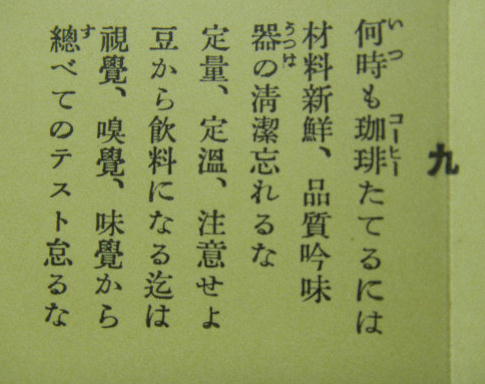 九
何時も珈琲たてるには
材料新鮮、品質吟味
器の淸潔忘れるな
定量、定溫、注意せよ
豆から飮料になる迄は
視覺、嗅覺、味覺から
總べてのテスト怠るな